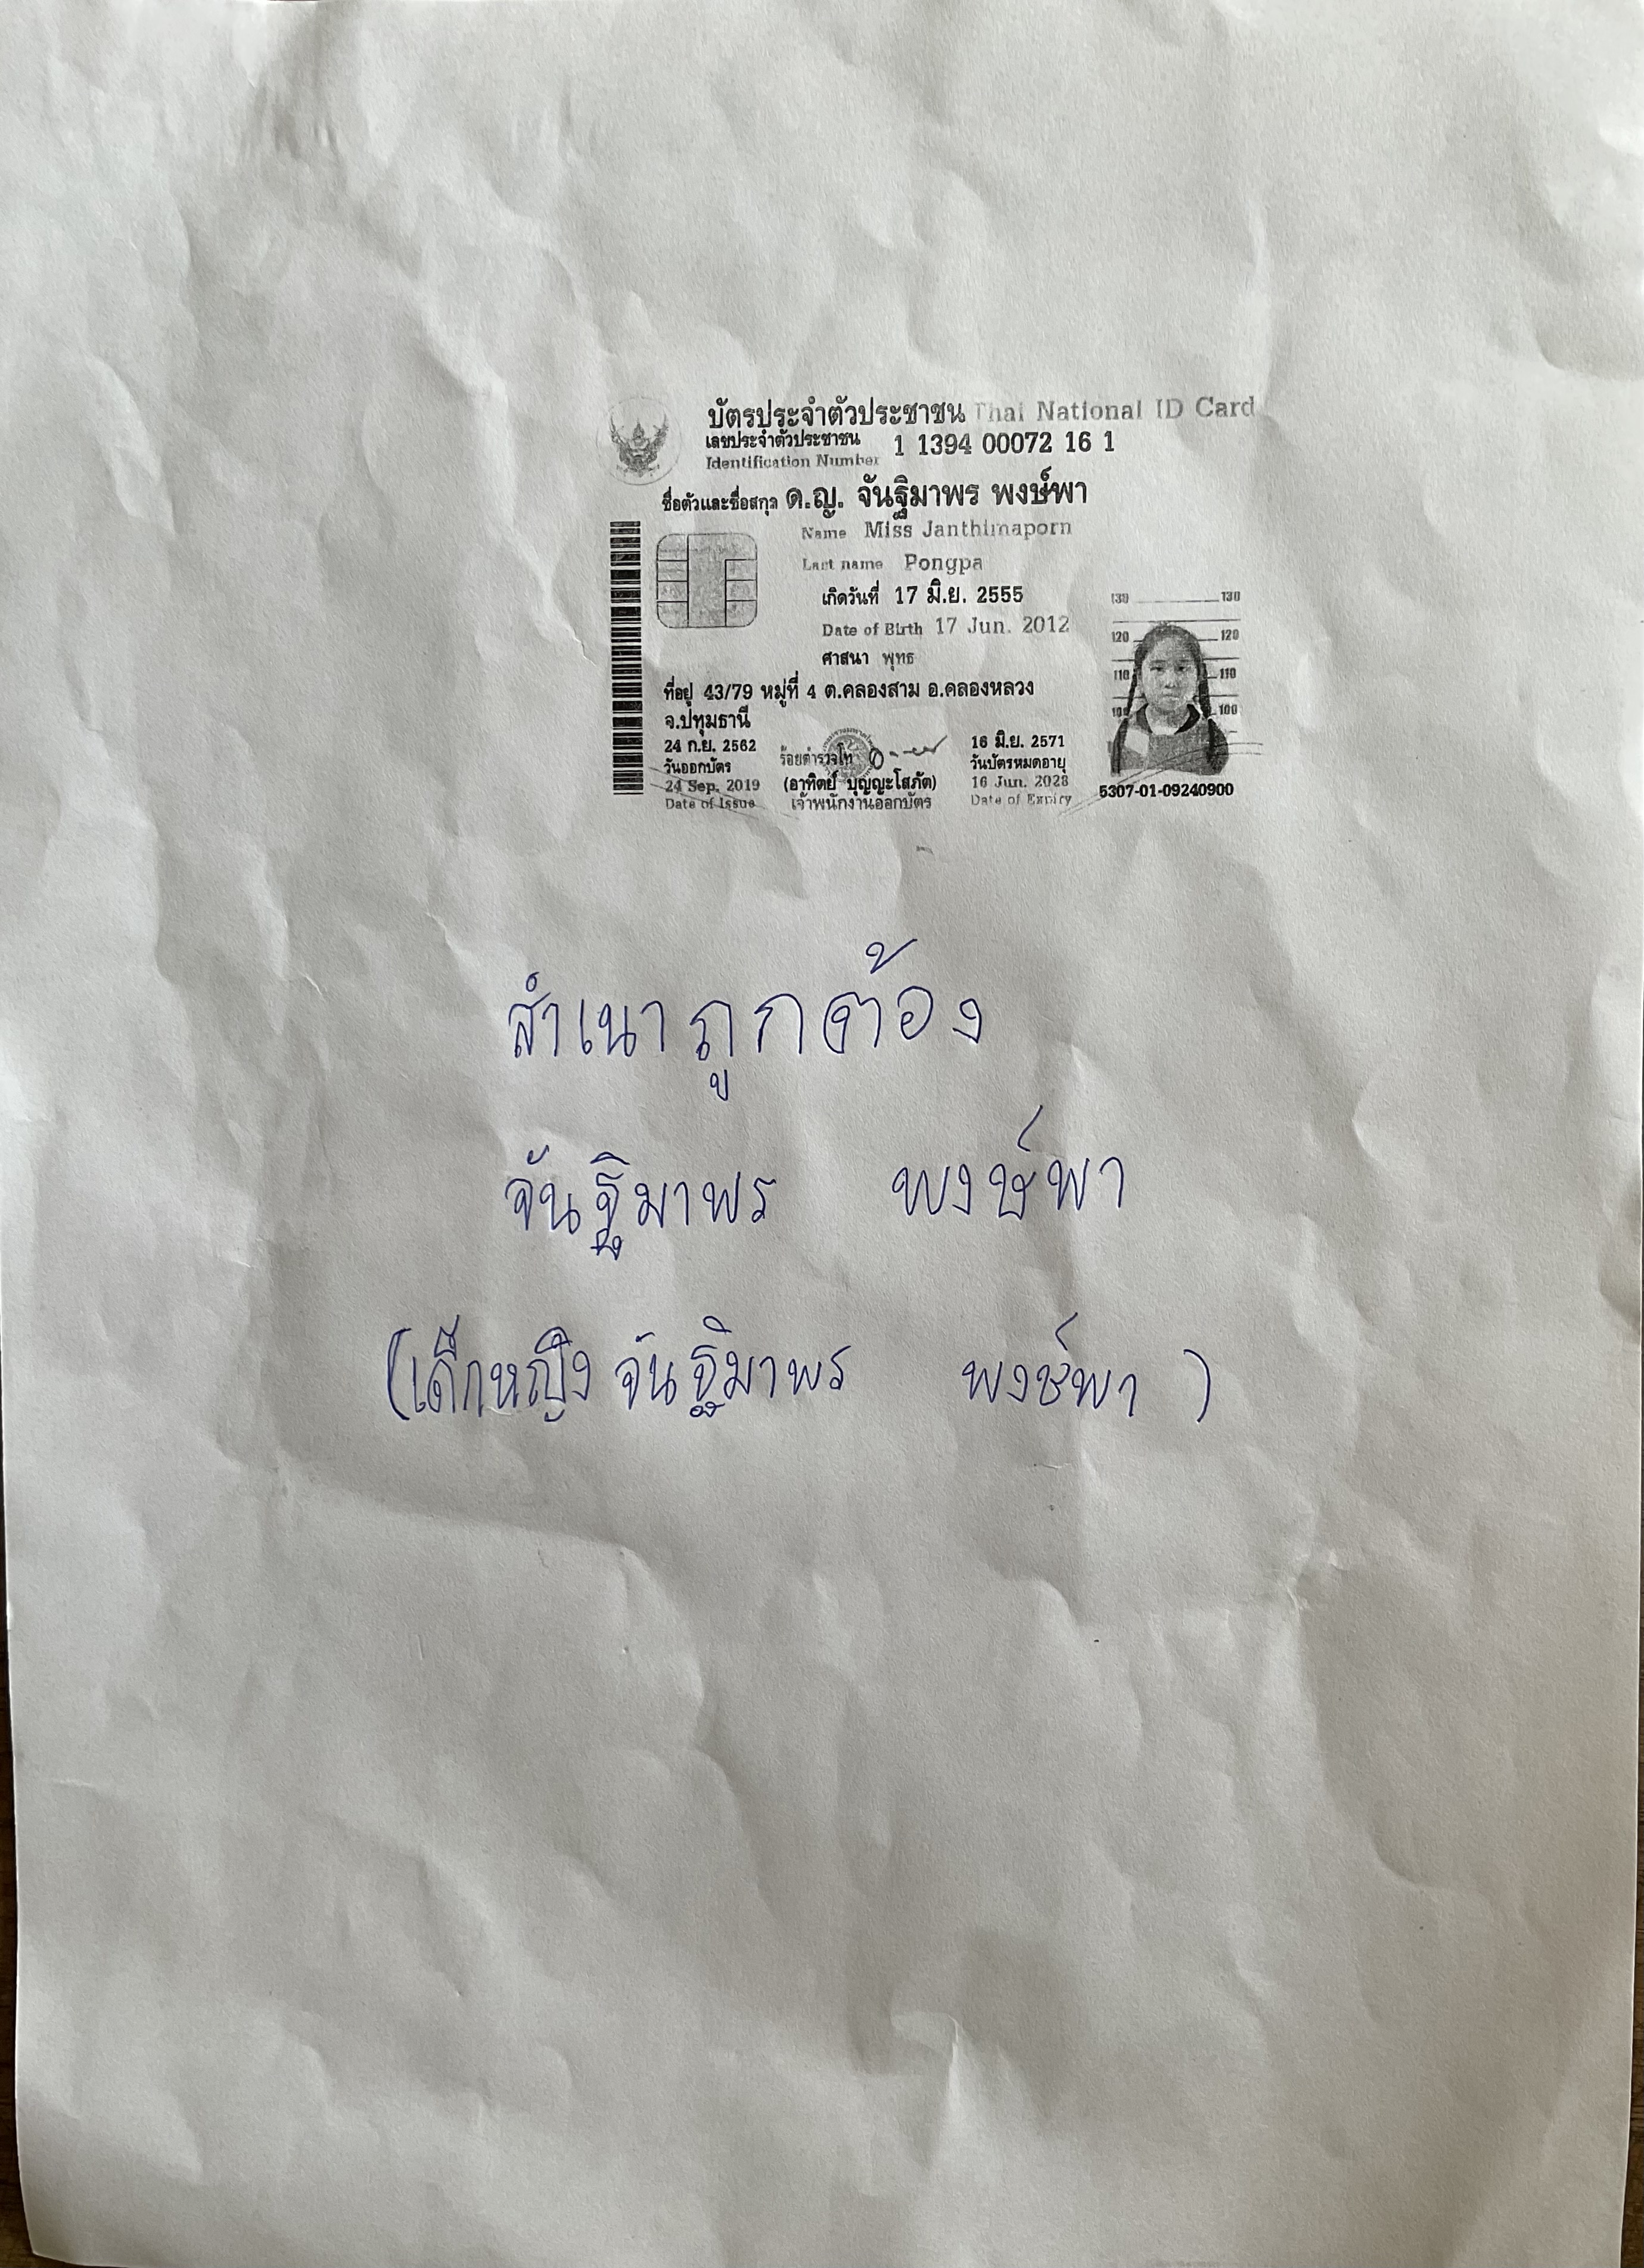 บัตรประจำตัวประชาชน Thai National ID Card
เลขประจำตัวประชาชน 1 1394 00072 16 1
Identification Number
ชื่อตัวและชื่อสกุล ด.ญ. จันฐิมาพร พงษ์พา
Name Miss Janthimaporn
Last name Pongpa
เกิดวันที่ 17 มิ.ย. 2555
Date of Birth 17 Jun. 2012
ศาสนา พุทธ
ที่อยู่ 43/79 หมู่ที่ 4 ต.คลองสาม อ.คลองหลวง
จ.ปทุมธานี
24 ก.ย. 2562
วันออกบัตร
24 Sep. 2019
Date of Issue
ร้อยตำรวจโท
(อาทิตย์ บุญญะโสภัต)
เจ้าพนักงานออกบัตร
16 มิ.ย. 2571
วันบัตรหมดอายุ
16 Jun. 2028
Date of Expiry
130 130
120 120
110 110
100 100
5307-01-09240900
สำเนาถูกต้อง
จันฐิมาพร พงษ์พา
(เด็กหญิง จันฐิมาพร พงษ์พา)